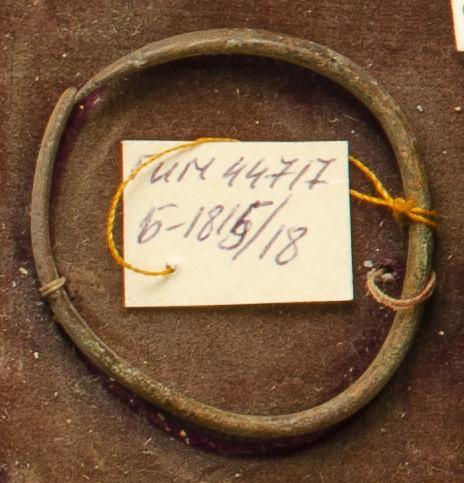 ГИМ 44717
Б-1815/18